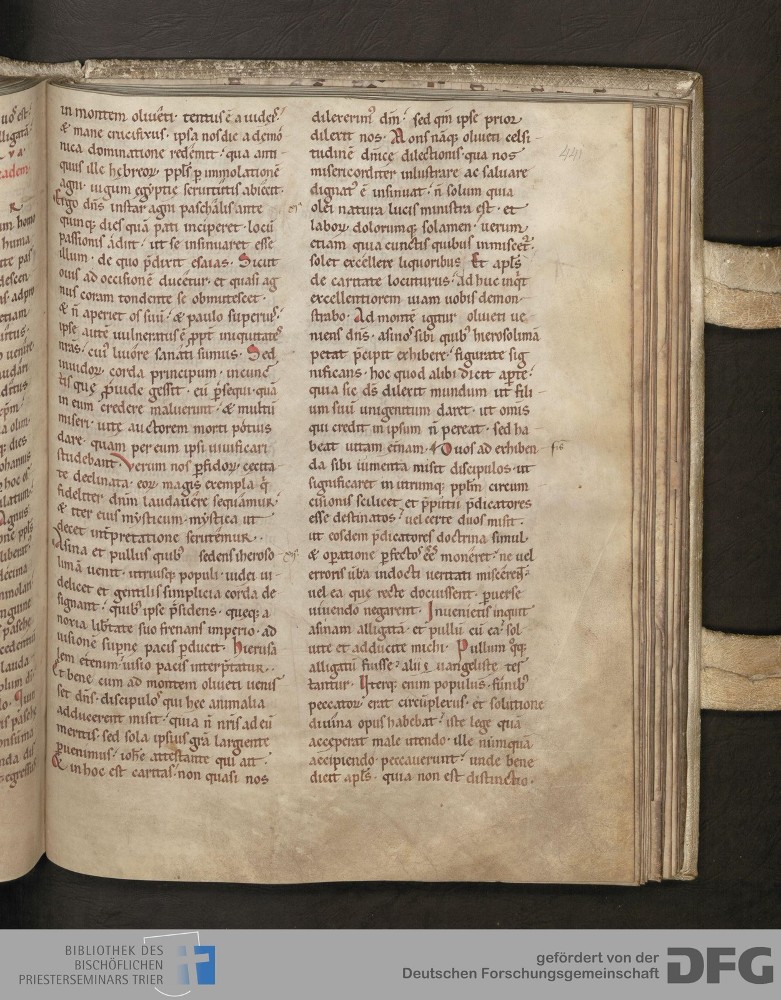 in montem oliueti· tentus ē a iudeis·
& mane crucifixus· ipsa nos die a demo
nica dominatione redemit· qua anti
quus ille hebreoꝝ ppl̄s ꝑ immolationē
agni· iugum egyptie seruitutis abiecit·
Ergo dn̄s instar agni paschalis ante
quinqꝫ dies quā pati inciperet· locū
passionis ādiit· ut se insinuaret esse
illum· de quo p̄dixit esaias· Sicut
ouis ad occisionē ducetur· et quasi ag
nus coram tondente se obmutescet·
& n̄ aperiet os suū· & paulo superius·
ipse autē uulneratus ē ꝓpt̄ iniquitates
nr̄as· cui' liuore sanati sumus· Sed
inuidoꝝ corda principum·
tis que ꝓuide gessit· eū ꝑsequi quā
in eum credere maluerunt· & multū
miseri· uite auctorem morti potius
dare· quam per eum ipsi uiuificari
studebant· Verum nos ꝑfidoꝝ cecita
te declinata· eoꝝ magis exempla q̄
fideliter dn̄m laudauere sequamur·
& iter eius mysticum· mystica ut
decet int̄pretatione scrutemur·
Asina et pullus quibꝰ sedens iheroso
limā uenit· utriusqꝫ populi· iudei ui
delicet et gentilis simplicia corda de
signant· quibꝰ ipse p̄sidens· queqꝫ a
noxia lib̄tate suo frenans imperio· ad
uisionē supne pacis ꝑducit· Hierusa
lem etenim uisio pacis interp̄tatur·
Et bene cum ad montem oliueti uenis
set dn̄s· discipulos qui hec animalia
adducerent misit· quia n̄ nr̄is ad eū
meritis· sed sola ipsius gr̄a largiente
ꝑuenimus· ioh̄e attestante qui ait·
& in hoc est caritas· non quasi nos
dilexerimꝰ dm̄· sed qm̄ ipse prior
dilexit nos· Mons nāqꝫ oliueti celsi
tudinē dn̄ice dilectionis· qua nos
misericorditer inlustrare ac saluare
dignatꝰ ē insinuat· n̄ solum quia
olei natura lucis ministra est· et
laboꝝ dolorumqꝫ solamen· uerum
etiam quia cunctis quibus inmiscet̄·
solet excellere liquoribus· Et apl̄s
de caritate locuturus· ad huc inq̇t
excellentiorem uiam uobis demon
strabo· Ad montē igitur oliueti ue
niens dn̄s· asinos sibi quibꝰ hierosolimā
petat p̄cipit exhibere· figurate sig
nificans· hoc quod alibi dicit aꝑte·
quia sic ds̄ dilexit mundum ut fili
um suū unigenitum daret· ut omīs
qui credit in ipsum n̄ pereat· sed ha
beat uitam et̄nam· Duos ad exhiben
da sibi iumenta misit discipulos· ut
significaret in utrumqꝫ ppl̄m circum
cisionis scilicet et p̄putii p̄dicatores
esse destinatos· uel certe duos misit·
ut eosdem p̄dicatores doctrina simul
& oꝑatione ꝑfectos ēē moneret· ne uel
erroris ūba indocti ueritati miscerent·
uel ea que recte docuissent· ꝑuerse
uiuendo negarent· Inuenietis inquit
asinam alligatā· et pullū cū ea· sol
uite et adducite michi· Pullum qq̄ꝫ
alligatū fuisse· alii euangeliste tes
tantur· Uterqꝫ enim populus· funibꝰ
peccatoꝝ erat circūplexus· et solutione
diuina opus habebat· iste lege quā
acceperat male utendo· ille nūmquā
accipiendo peccauerunt· unde bene
dicit apl̄s· quia non est distinctio·
441
BIBLIOTHEK DES
BISCHÖFLICHEN
PRIESTERSEMINARS TRIER
gefördert von der
Deutschen Forschungsgemeinschaft
DFG